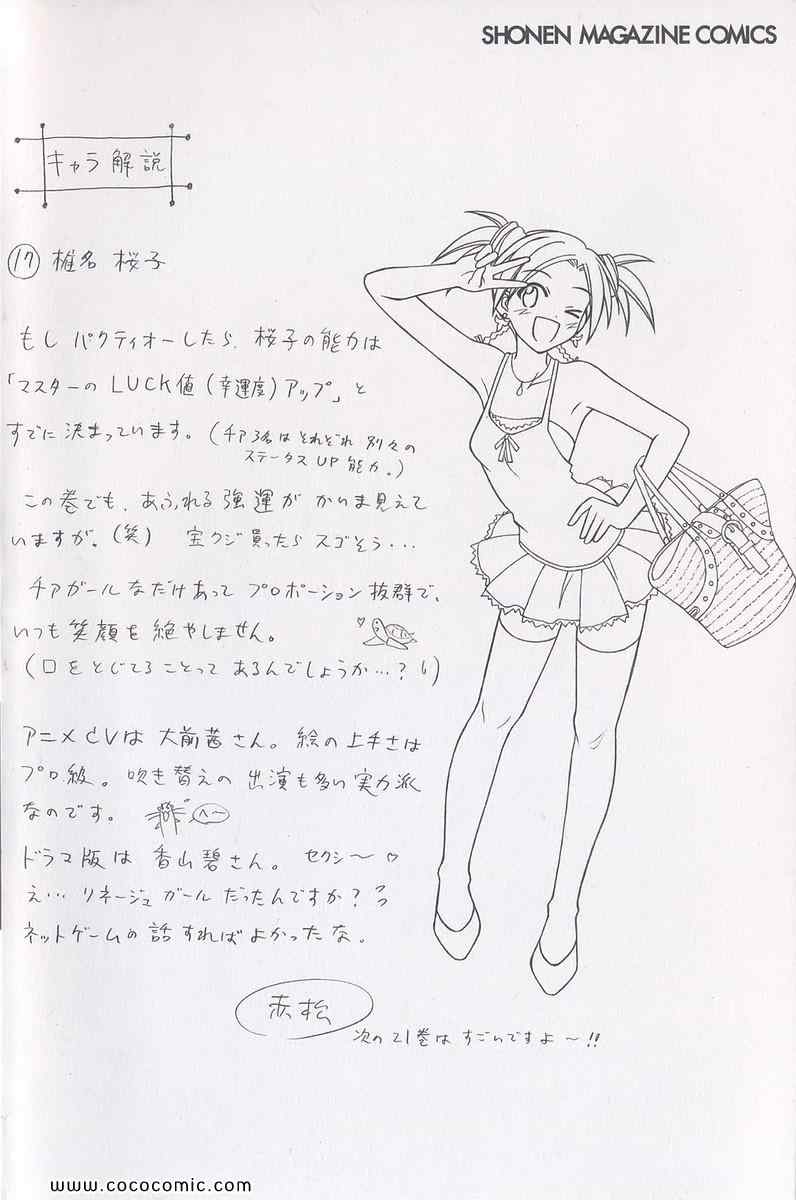 SHONEN MAGAZINE COMICS
キャラ解説
⑰ 椎名 桜子
もし パクティオーしたら、桜子の能力は
「マスターの LUCK値(幸運度)アップ」と
すでに決まっています。(チア3名はそれぞれ 別々の
ステータス UP 能力。)
この巻でも、あふれる強運が かいま見えて
いますが。(笑) 宝クジ買ったら スゴそう・・・
チアガールなだけあって プロポーション抜群で、
いつも笑顔を絶やしません。
(口をとじてることって あるんでしょうか…?)
アニメCVは 大前茜さん。絵の上手さは
プロ級。吹き替えの 出演も多い実力派
なのです。 へー
ドラマ版は 香山碧さん。 セクシ〜♡
え… リネージュガールだったんですか?
ネットゲームの話すればよかったな。
赤松
次の21巻は すごいですよ〜!!
www.cococomic.com